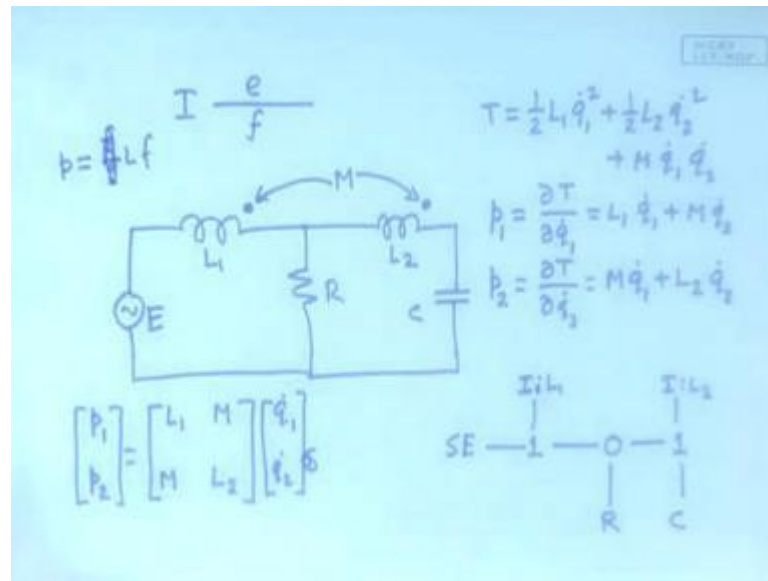 I e/f
p = Lf
T = ½ L₁ q̇₁² + ½ L₂ q̇₂²
+ M q̇₁ q̇₂
p₁ = ∂T/∂q̇₁ = L₁ q̇₁ + M q̇₂
p₂ = ∂T/∂q̇₂ = M q̇₁ + L₂ q̇₂
M
L₁
L₂
R
C
E
[p₁ p₂] = [L₁ M; M L₂] [q̇₁ q̇₂]
I:L₁ I:L₂
SE — 1 — 0 — 1
R C